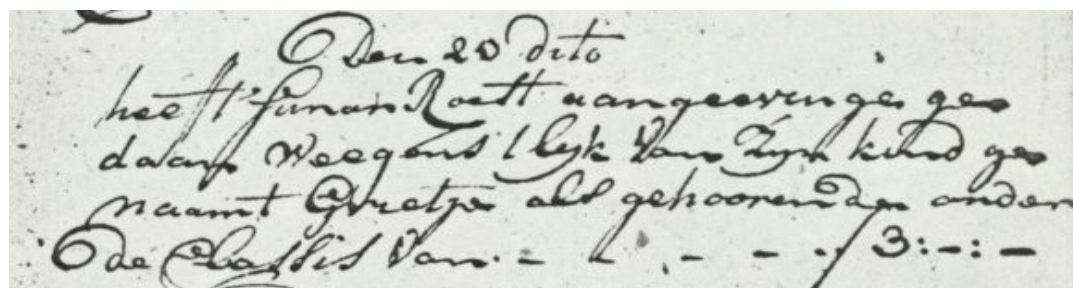 Den 20 dito
heeft Junan Roest aangeevinge ge
daan weegens 't lijk van zijn kind ge
naamt Grietje als gehoorende onder
de Classis van - - - - - ƒ 3:-:-